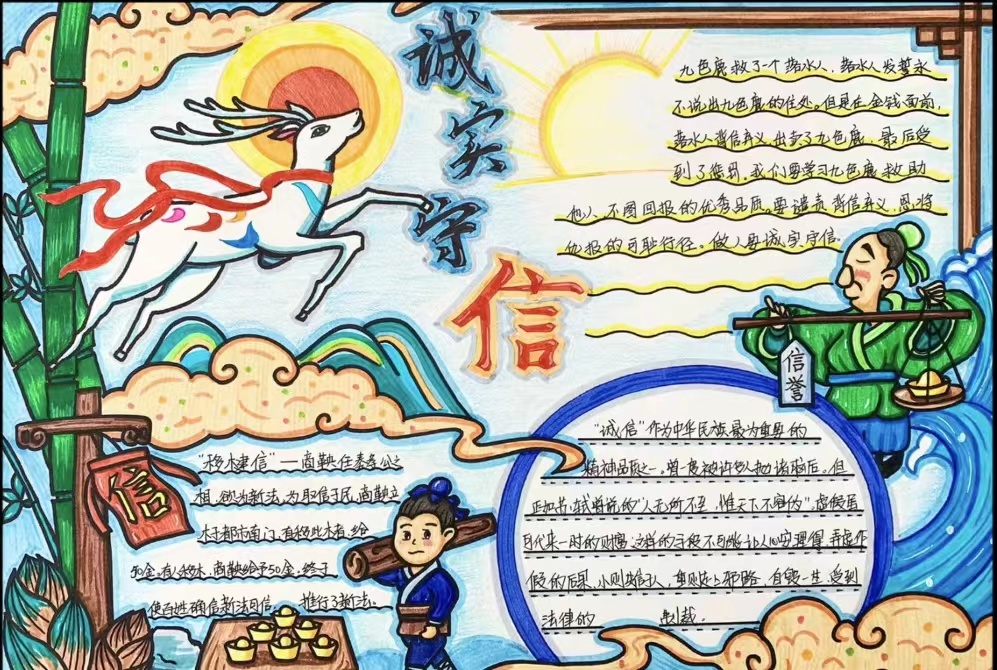 诚
实
守
信
九色鹿救了一个落水人，落水人发誓永
不说出九色鹿的住处。但是在金钱面前，
落水人背信弃义，出卖了九色鹿，最后受
到了惩罚。我们要学习九色鹿救助
他人、不图回报的优秀品质，要谴责背信弃义、恩将
仇报的可耻行径。做人要诚实守信
信誉
信
"移木建信"——商鞅任秦
相，欲为新法，为取信于民，商鞅立
木于都城南门，有移此木者，给
50金，有人移木，商鞅给予50金，终于
使百姓确信新法可信， 推行了新法。
"诚信"作为中华民族最为重要的
精神品质之一，曾一度被许多人抛诸脑后，但
正如苏轼曾说的"人无所不至，惟天下不容伪"，虚假虽
可代来一时的财富，这样的手段不可能让人心安理得，弄虚作
假的后果，小则失信于人，重则走上邪路，自毁一生，受到
法律的 制裁。